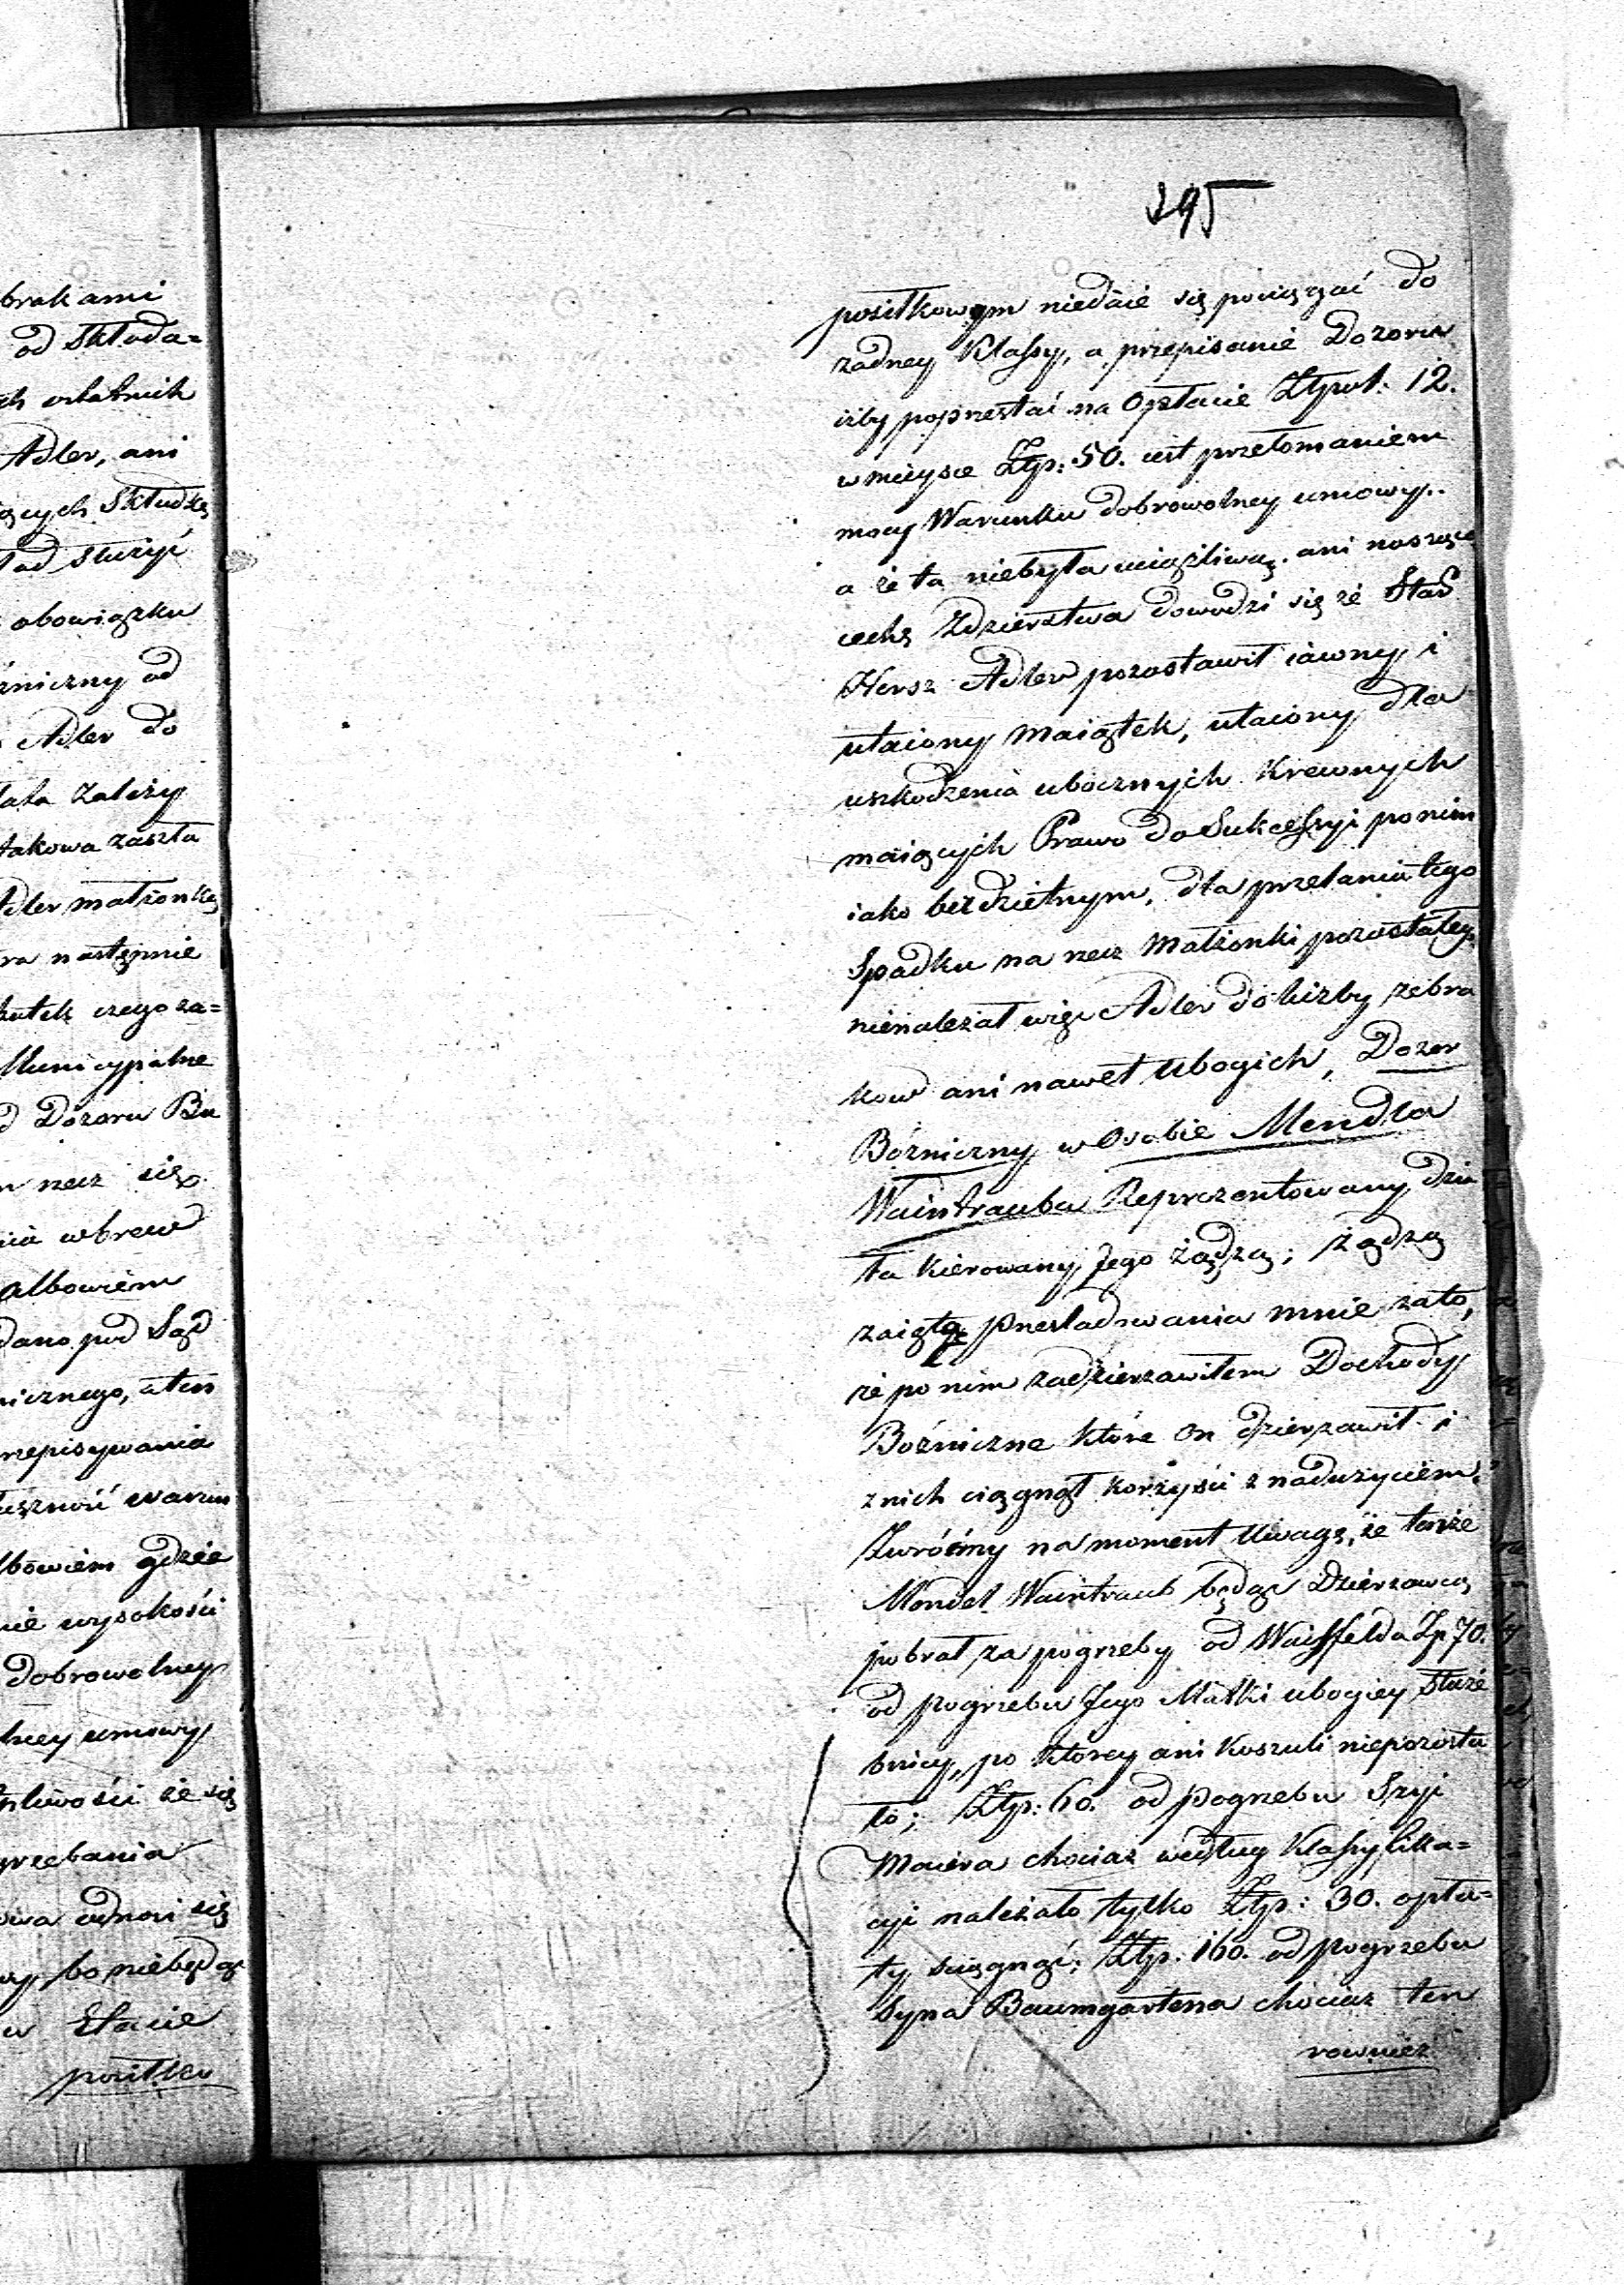 295
brakami
od Składa=
ch ostatnich
Adler, ani
ących Składkę
służyć
obowiązku
źniczny od
Adler do
Zależy
takowa zaszła
Adler małżonkę
ra następnie
skutek czego za=
Municypalne
d Dozoru Bu
rzecz się
nia wbrew
albowiem
dano pod Sąd
nicznego, a ten
przepisywania
uszność warun
lbowiem gdzie
nie wysokości
dobrowolney
lney umowy
pliwości że się
grzebania
owa odnosi się
wy bo niebędąc
w Etacie
posiłko
posiłkowym niedaie się pociągać do
żadney Klassy, a przepisanie Dozoru
iżby poprzestać na Opłacie Złpol: 12.
w mieysce Złp: 50. iest przełomaniem
mocy Warunku dobrowolney umowy..
a że ta niebyła uciążliwą. ani nosząca
cechę Zdzierztwa dowodzi się że Star
Hersz Adler pozostawił iawny i
utaiony maiątek, utaiony dla
uszkodzenia ubocznych Krewnych
maiących Prawo do Sukcessyi po nim
iako bezdzietnym, dla przelania tego
Spadku na rzecz Małżonki pozostałey
nienależał więc Adler do liczby żebra
ków ani nawet Ubogich, Dozor
Bożniczny w Osobie Mendla
Waintrauba Reprezentowany dzia
ła kierowany Jego żądzą; żądzą
zaiętą prześladowania mnie zato,
że po nim zadzierżawiłem Dochody
Bożniczne które On dzierżawił i
znich ciągnął korzyści z nadużyciem.
Zwróćmy na moment Uwagę, że tenże
Mendel Waintraub będąc Dzierżawcą
pobrał za pogrzeby od Waisfelda Zp 70.
od pogrzebu Jego Matki ubogiey Służe
bnicy, po którey ani koszuli niepozosta
ło; Złp: 60. od pogrzebu Szyi
Maiera chociaż według Klassyfika=
cyi należało tylko Złp: 30. opła=
ty ściągnąć; Złp. 160. od pogrzebu
Syna Baumgartena chociaż ten
rownież